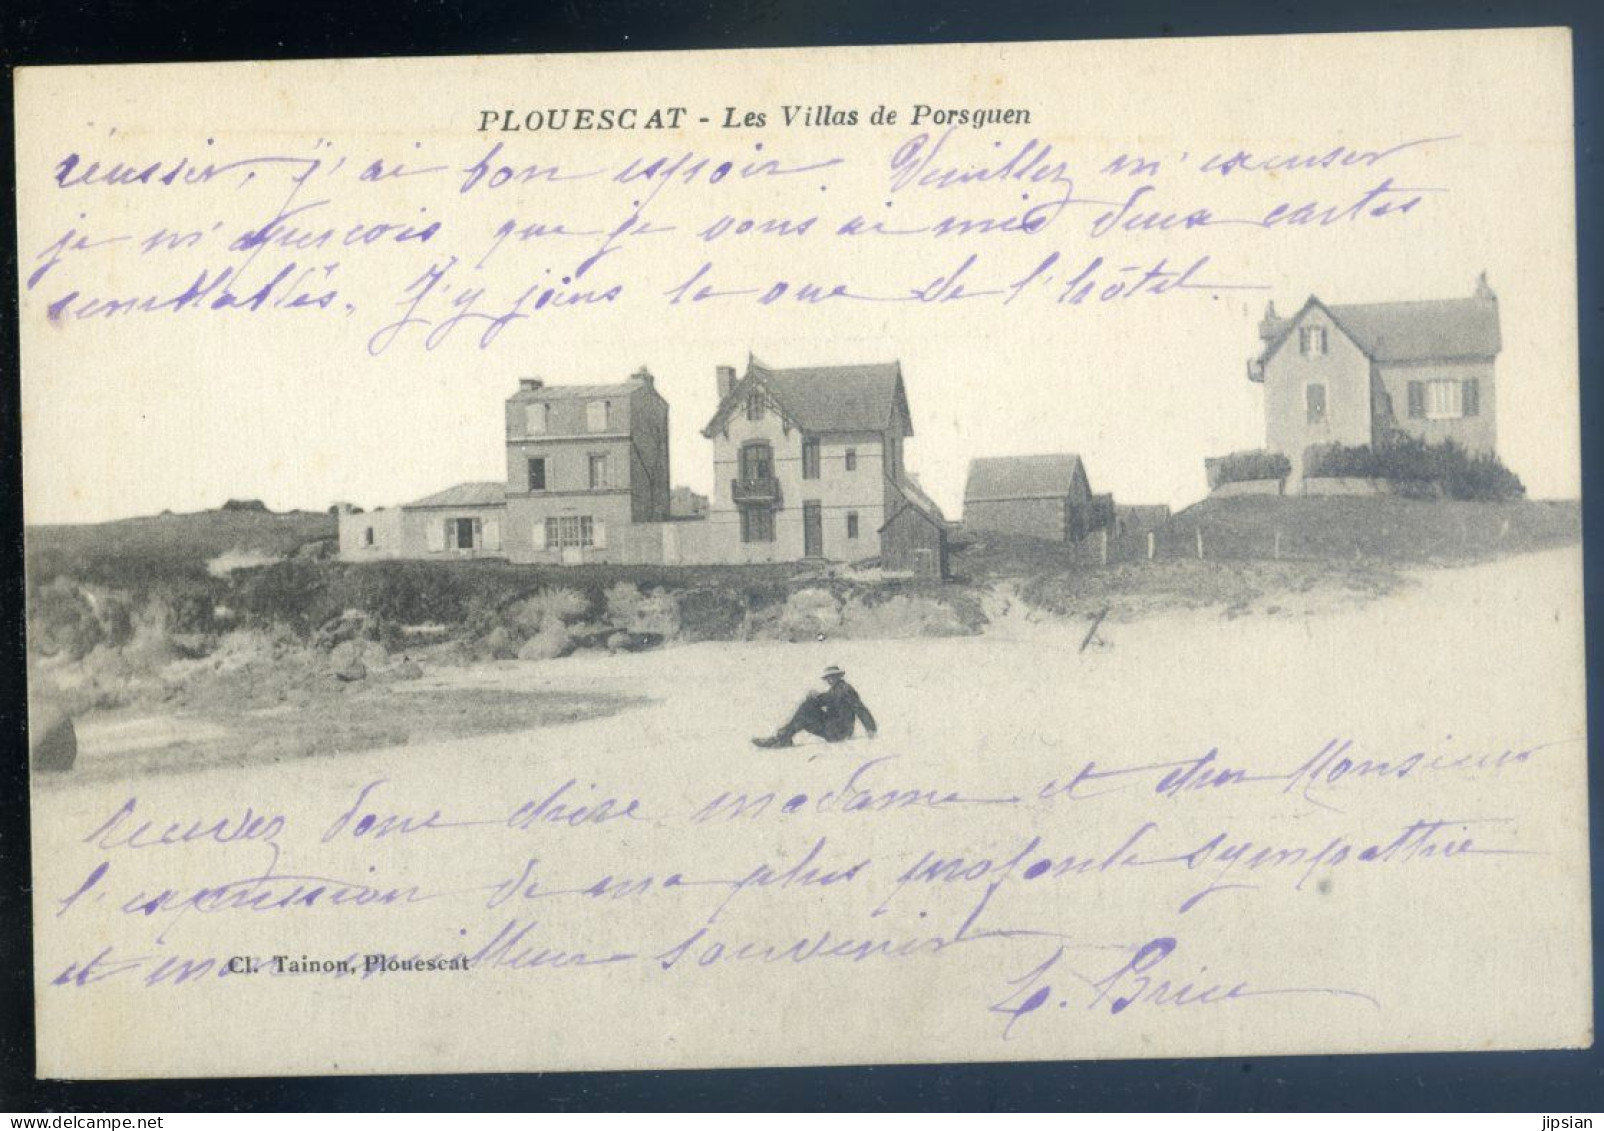 PLOUESCAT - Les Villas de Porsguen
réussir, j'ai bon espoir. Veuillez m'excuser
je m'aperçois que je vous ai mis deux cartes
semblables. J'y joins la vue de l'hôtel.
recevez donc chère madame et cher Monsieur
l'expression de ma plus profonde sympathie
et mon meilleur souvenir
Cl. Tainon, Plouescat
L. Brice
jipsian